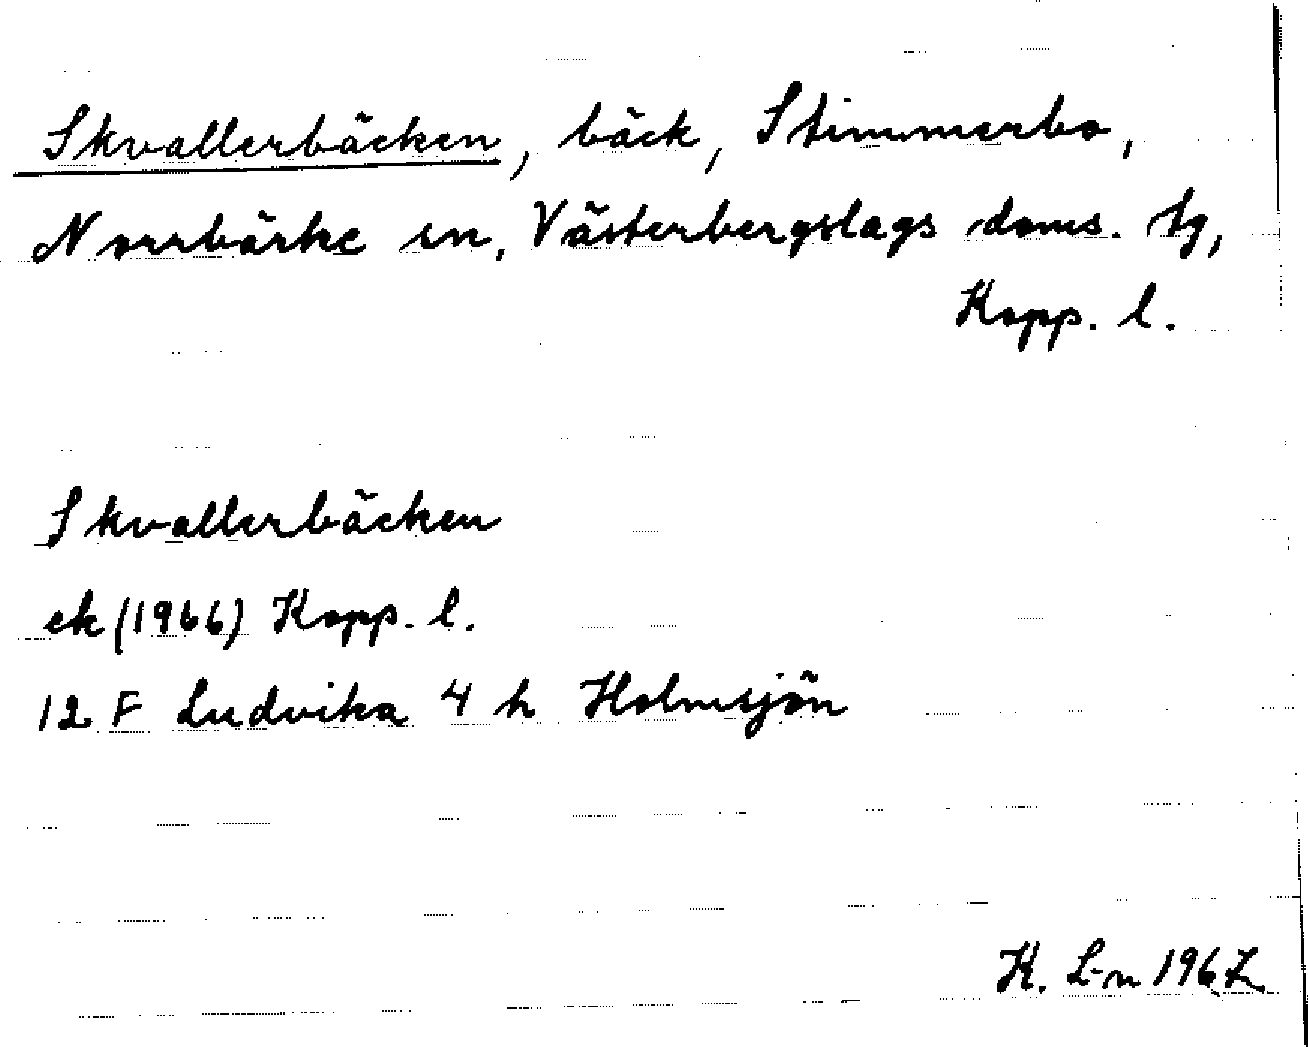 Skvallerbäcken, bäck, Stimmerbo,
Norrbärke sn, Västerbergslags doms. tg,
Kopp. l.
Skvallerbäcken
ek (1966) Kopp. l.
12 F Ludvika 4 h Holmsjön
K. L-n 1967